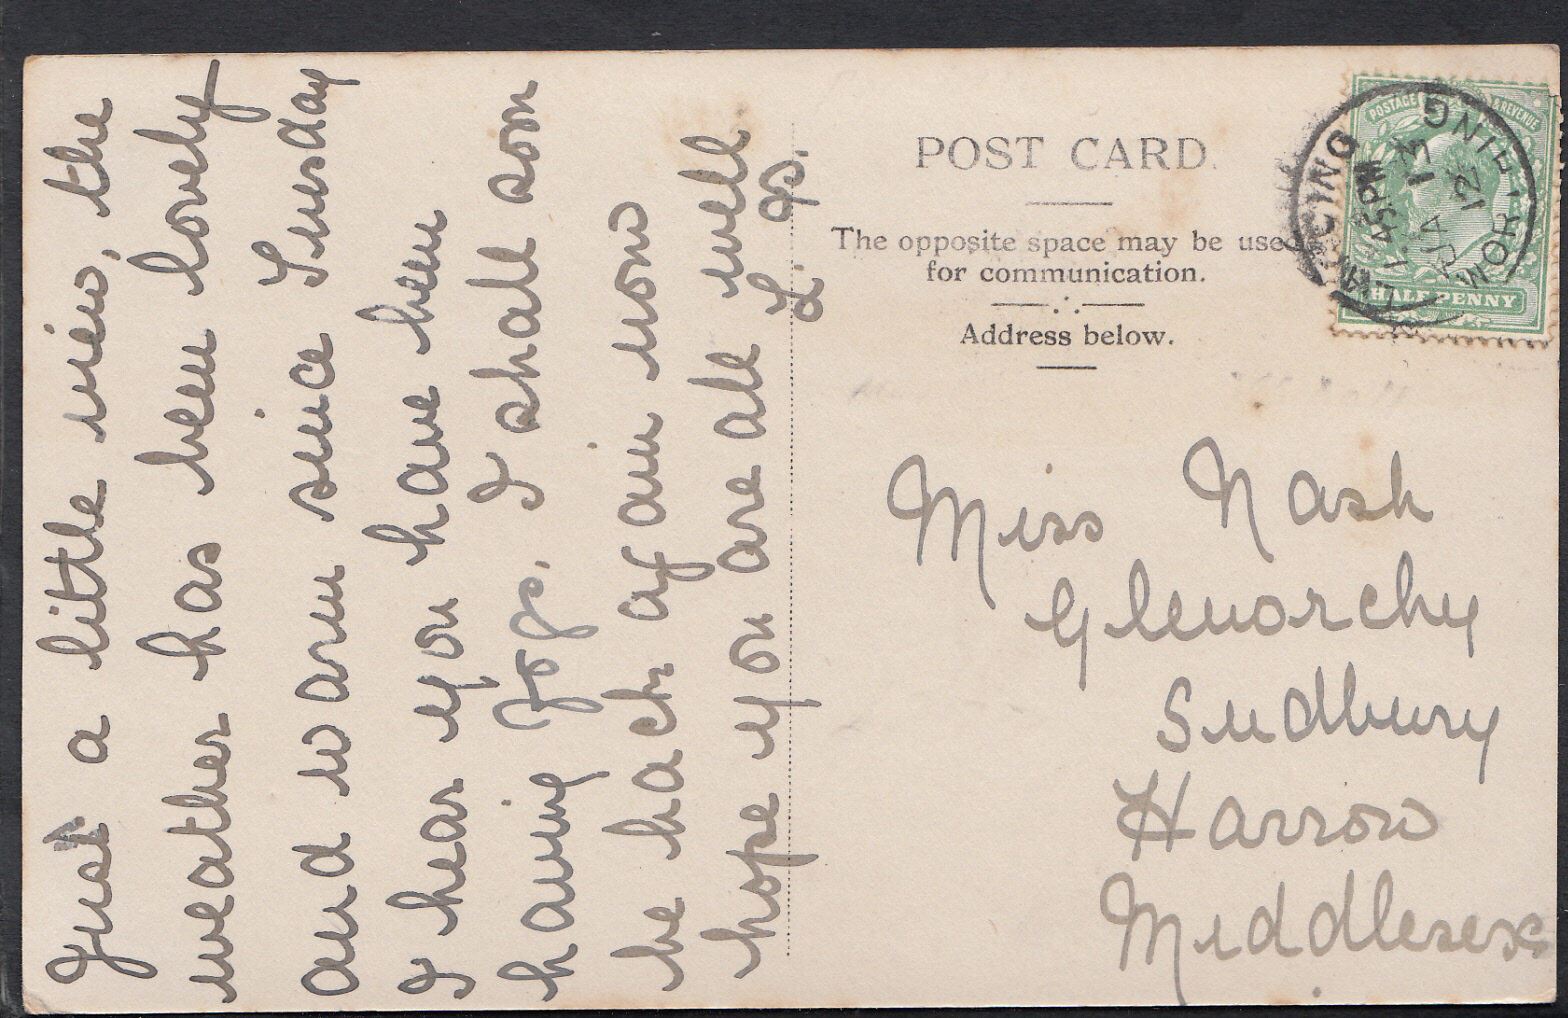 Just a little view, the
weather has been lovely
and warm since Sunday
I hear you have been
having fogs. I shall soon
be back again now
hope you are all well
L. B.
POST CARD.
The opposite space may be used
for communication.
Address below.
Miss Nash
Glenorchy
Sudbury
Harrow
Middlesex
WORTHING
7.45 PM
JA 13
12
POSTAGE & REVENUE
HALFPENNY